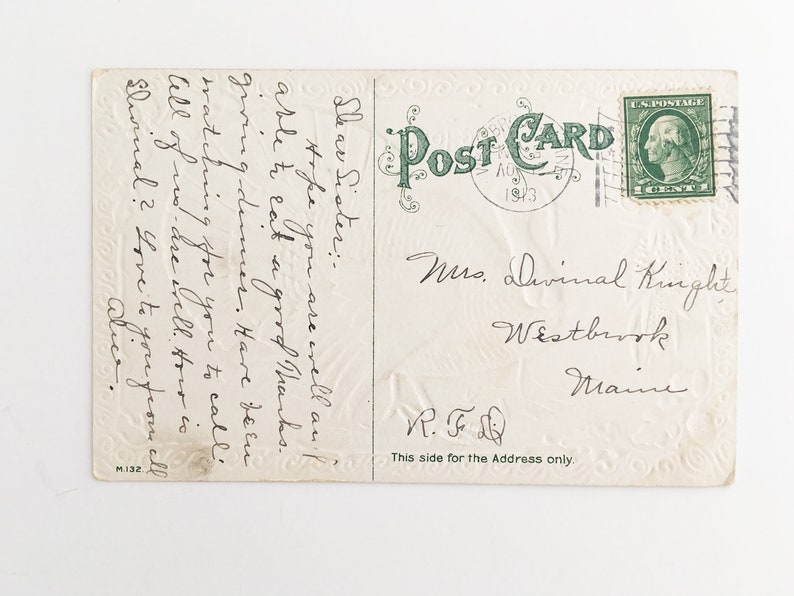 Dear Sister:-
Hope you are well and
able to eat a good Thanks-
giving dinner. Have been
watching for you to call
All of us are well. How is
Dwinal? Love to you from all
Alice.
POST CARD
1913
U.S. POSTAGE
1 CENT 1
Mrs. Dwinal Knight,
Westbrook
Maine
R. F. D
This side for the Address only.
M.132.